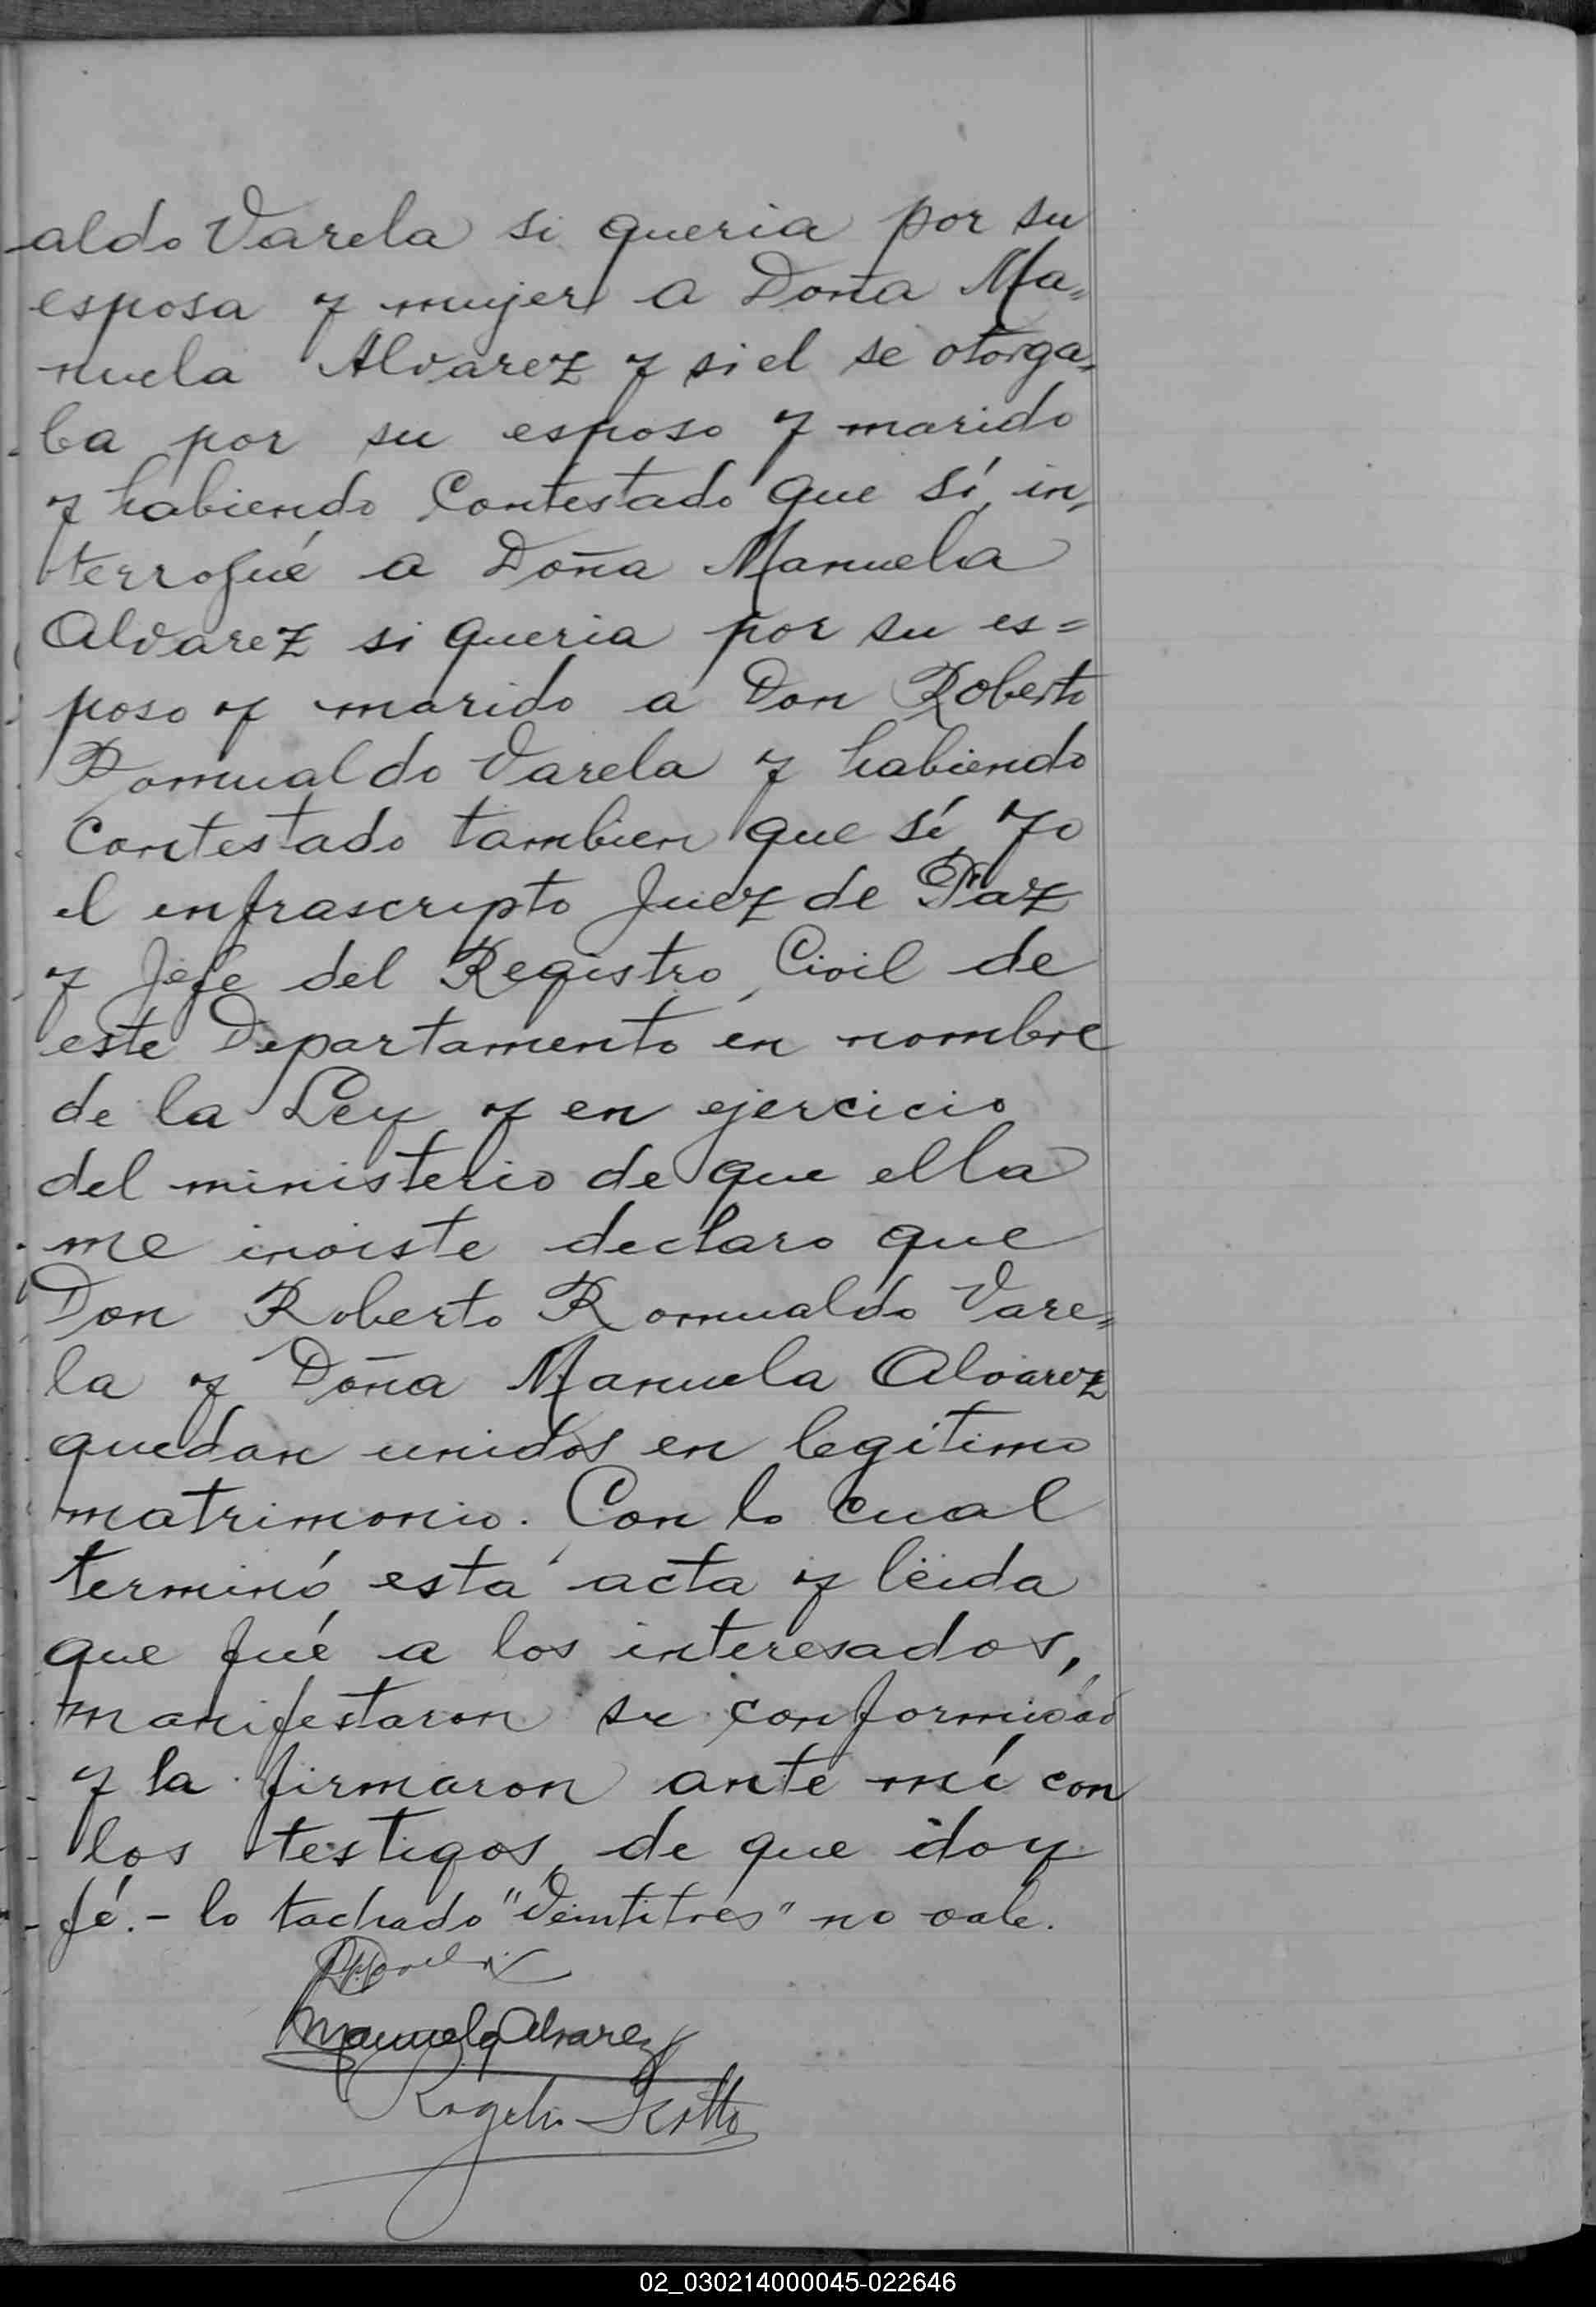 aldo Varela si queria por su
esposa y mujer a Doña Ma=
nuela Alvarez y si el se otorga=
ba por su esposo y marido
y habiendo Contestado que sí, in=
terrogué a Doña Manuela
Alvarez si queria por su es=
poso y marido a Don Roberto
Romualdo Varela y habiendo
Contestado tambien que sí, Yo
el infrascripto Juez de Paz
y Jefe del Registro Civil de
este Departamento en nombre
de la Ley y en ejercicio
del ministerio de que ella
me inviste declaro que
Don Roberto Romualdo Vare=
la y Doña Manuela Alvarez
quedan unidos en legítimo
matrimonio. Con lo cual
terminó esta acta y leida
que fué a los interesados,
manifestaron su conformidad
y la firmaron ante mí con
los testigos, de que doy
fé.- lo tachado "Veintitrés" no vale.
Manuela Alvarez
02_030214000045-022646